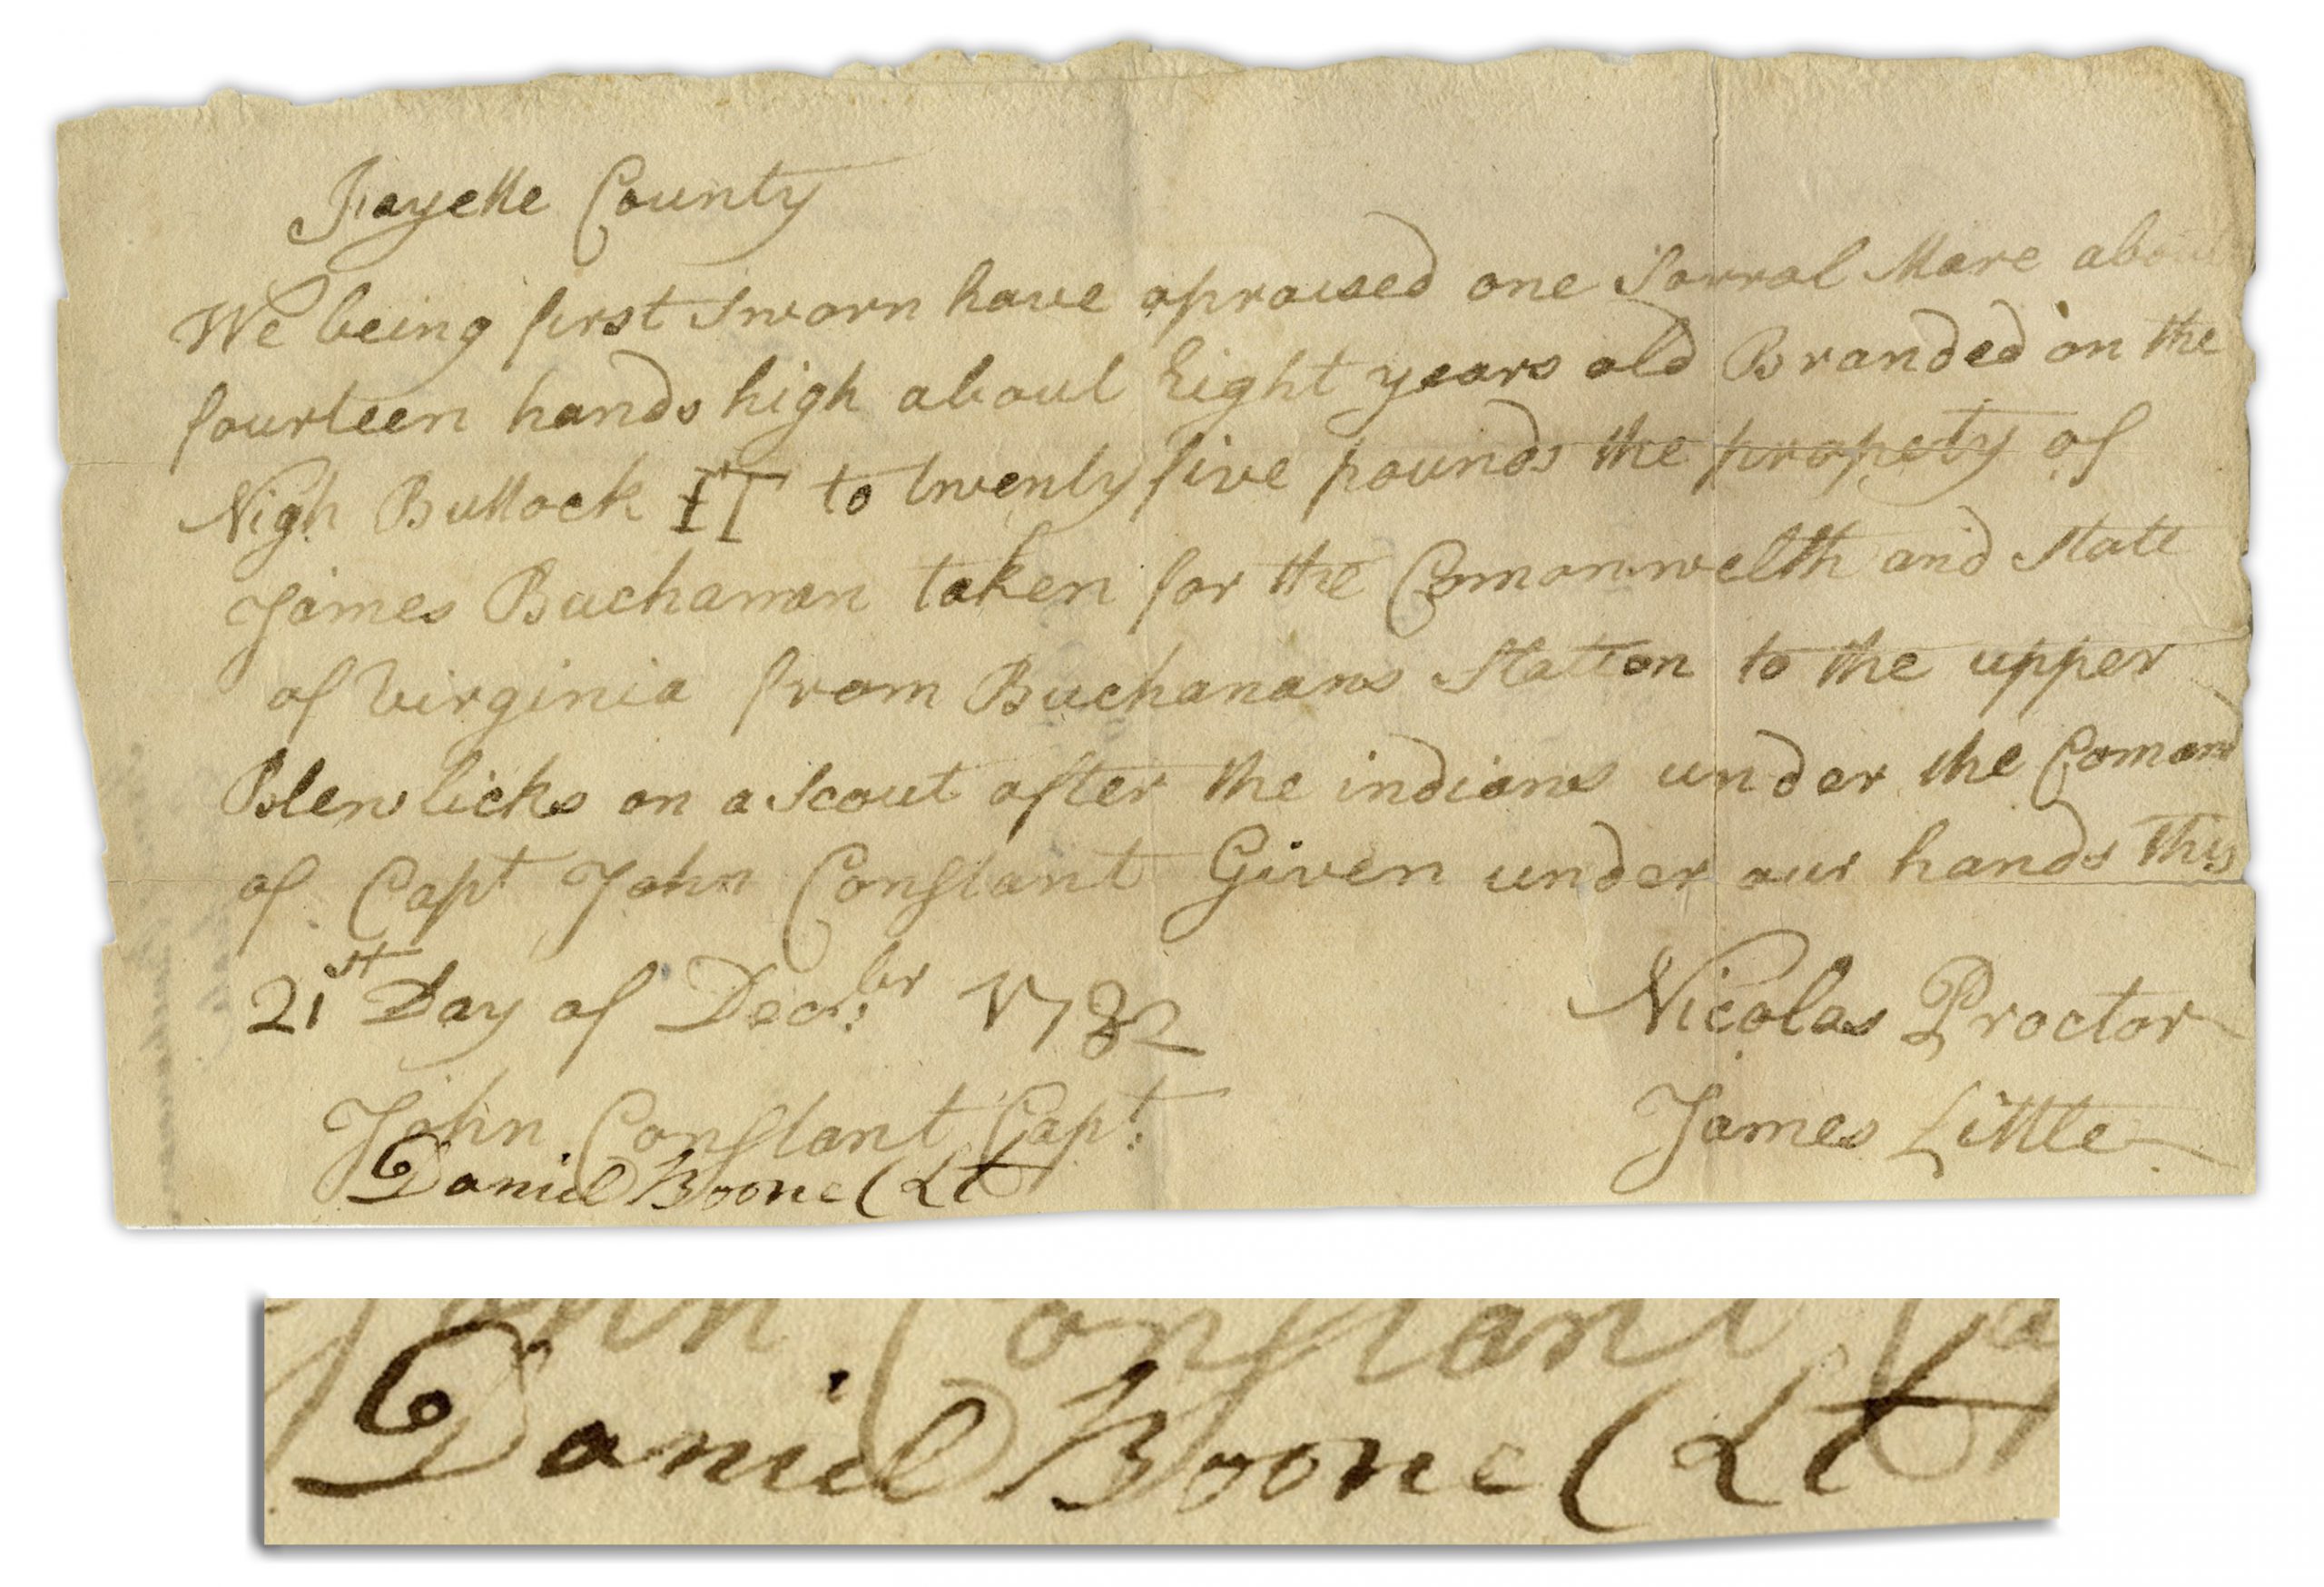 Fayette County
We being first Sworn have apraised one Sorral Mare about
fourteen hands high about Eight years old Branded on the
Nigh Buttock IT to twenty five pounds the propety of
James Buchannan taken for the Comonwelth and State
of Virginia from Buchanans Station to the upper
Blew licks on a Scout after the indians under the Comand
of Capt John Constant Given under our hands this
21st Day of Decbr 1782
Nicolas Proctor
John Constant Capt
James Little
Daniel Boone (Lt
John Constant Ca
Daniel Boone (Lt